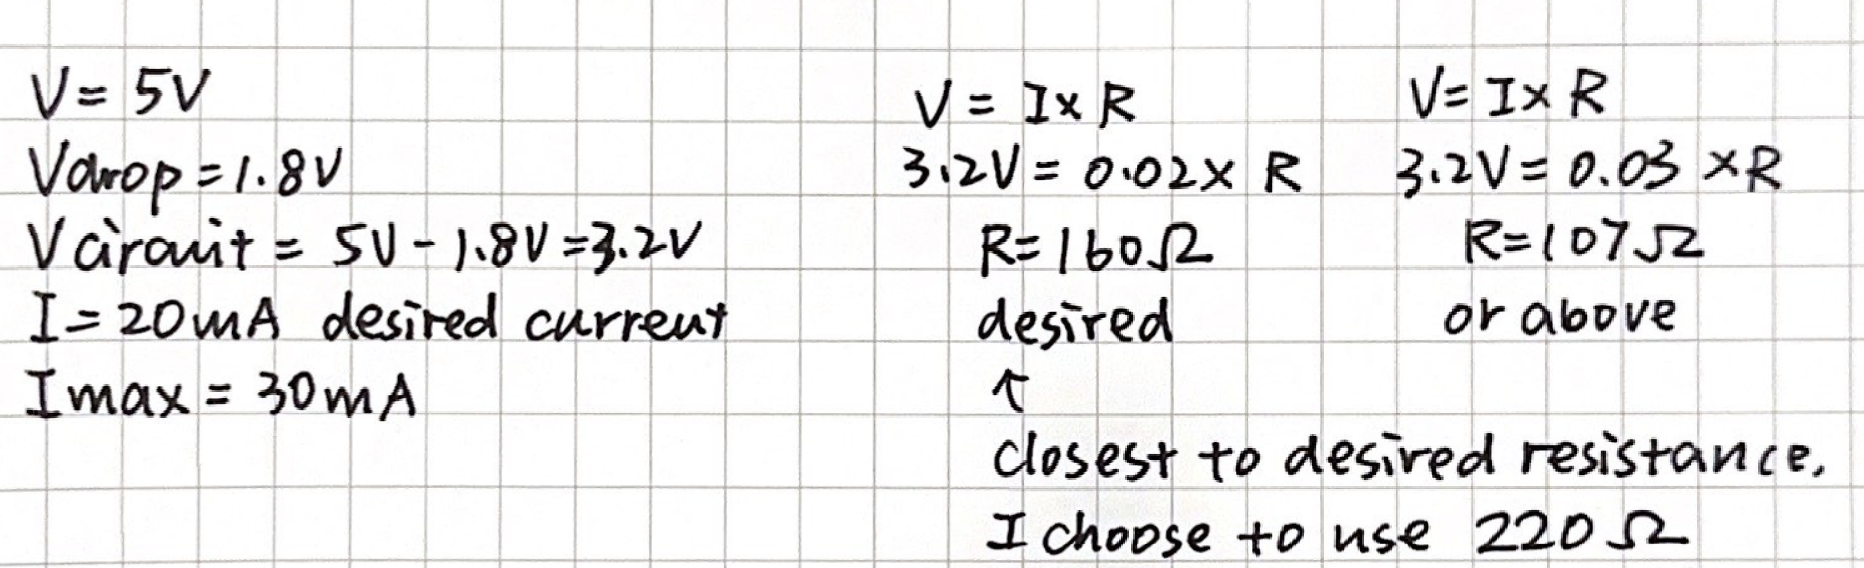 V = 5V
Vdrop = 1.8V
Vcircuit = 5V - 1.8V = 3.2V
I = 20mA desired current
Imax = 30mA
V = I x R
3.2V = 0.02 x R
R = 160Ω
desired
↑
closest to desired resistance.
I choose to use 220Ω
V = I x R
3.2V = 0.03 x R
R = 107Ω
or above